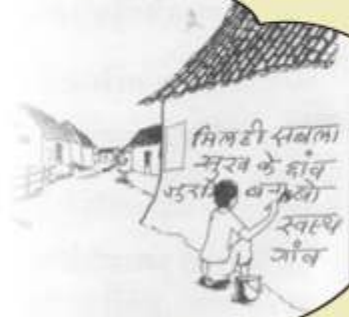 2
मिलही सबला
सुख के छांव
बनाबो
स्वस्थ
गांव